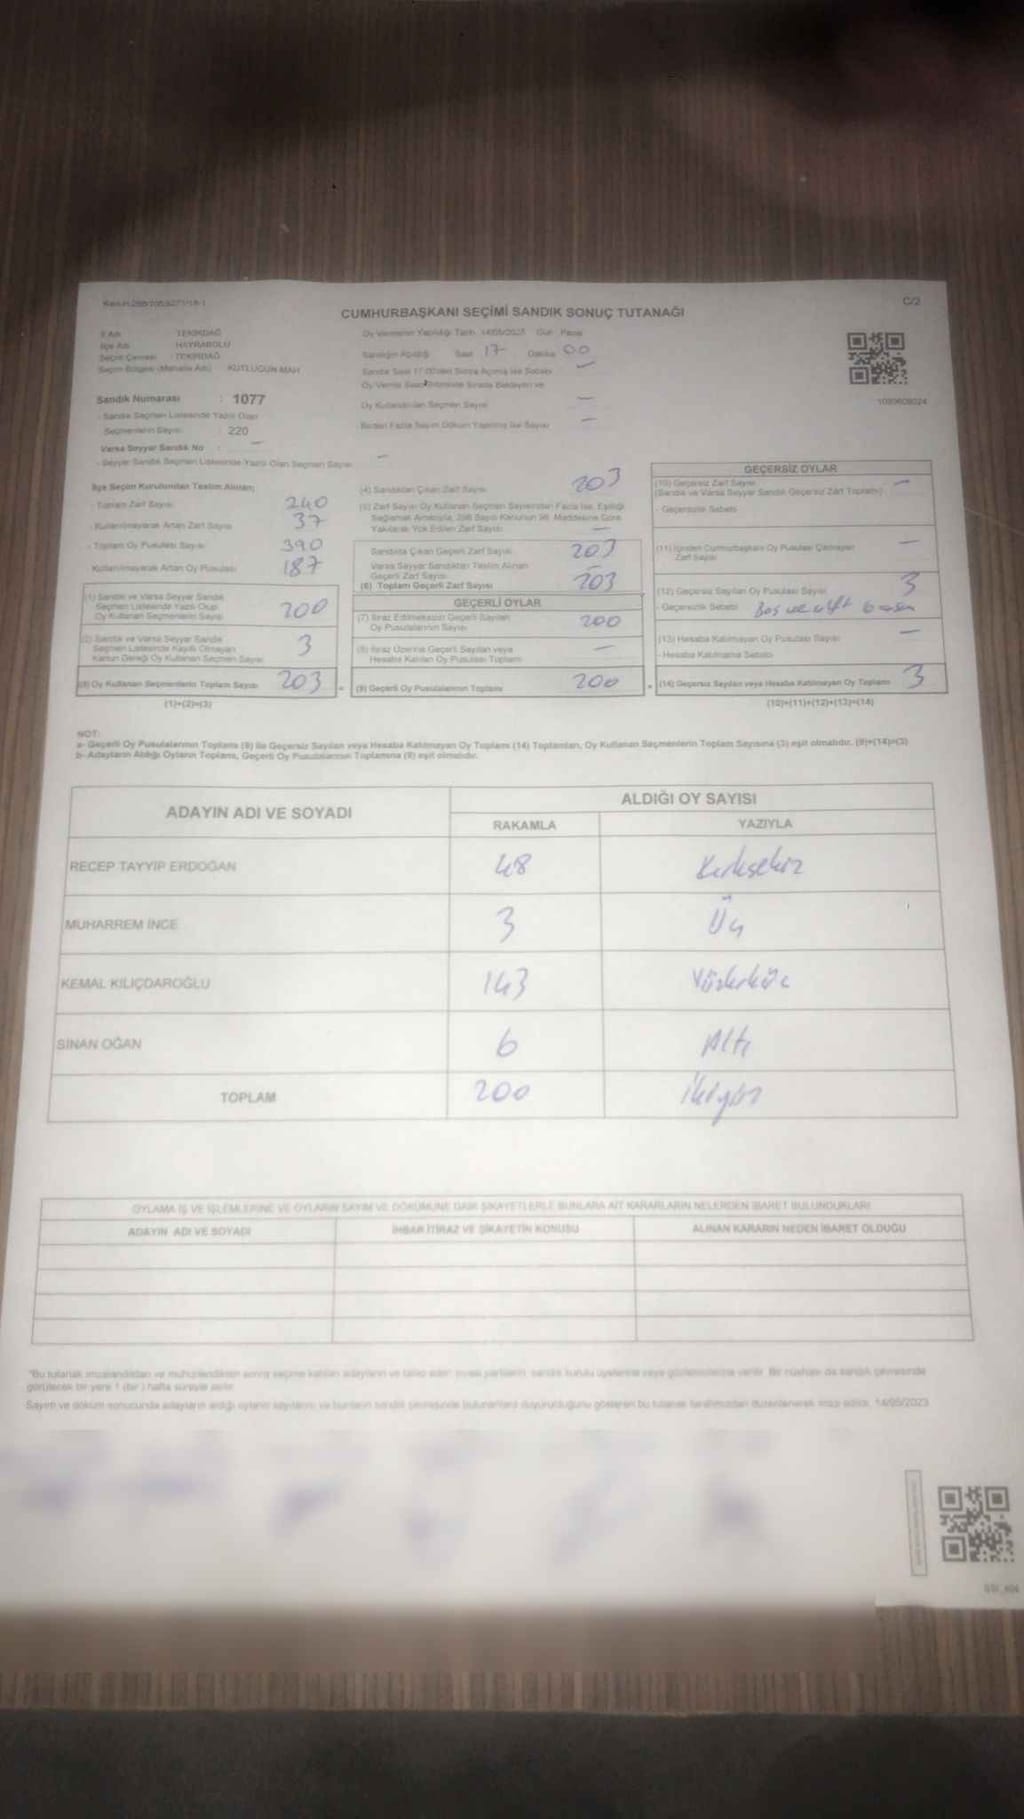 C/2
CUMHURBAŞKANI SEÇİMİ SANDIK SONUÇ TUTANAĞI
İl Adı : TEKİRDAĞ
İlçe Adı : HAYRABOLU
Seçim Çevresi : TEKİRDAĞ
Seçim Bölgesi (Mahalle Adı) : KUTLUGÜN MAH
Oy Vermenin Yapıldığı Tarih 14/05/2023 Gün Pazar
Sandığın Açıldığı Saat 17 Dakika 00
Oy Kullandırılan Seçmen Sayısı —
Birden Fazla Sayım Döküm Yapılmış İse Sayısı —
Sandık Numarası : 1077
- Sandık Seçmen Listesinde Yazılı Olan
Seçmenlerin Sayısı : 220
Varsa Seyyar Sandık No : —
- Seyyar Sandık Seçmen Listesinde Yazılı Olan Seçmen Sayısı —
İlçe Seçim Kurulundan Teslim Alınan;
- Toplam Zarf Sayısı 240
- Kullanılmayarak Artan Zarf Sayısı 37
- Toplam Oy Pusulası Sayısı 390
Kullanılmayarak Artan Oy Pusulası 187
(1) Sandık ve Varsa Seyyar Sandık
Seçmen Listesinde Yazılı Olup
Oy Kullanan Seçmenlerin Sayısı 200
(2) Sandık ve Varsa Seyyar Sandık
Seçmen Listesinde Kayıtlı Olmayan
Kanun Gereği Oy Kullanan Seçmen Sayısı 3
(3) Oy Kullanan Seçmenlerin Toplam Sayısı 203
(1)+(2)=(3)
(4) Sandıktan Çıkan Zarf Sayısı 203
(5) Zarf Sayısı Oy Kullanan Seçmen Sayısından Fazla İse, Eşitliği
Sağlamak Amacıyla, 298 Sayılı Kanunun 98. Maddesine Göre
Yakılarak Yok Edilen Zarf Sayısı —
Sandıkta Çıkan Geçerli Zarf Sayısı 203
Varsa Seyyar Sandıktan Teslim Alınan
Geçerli Zarf Sayısı —
(6) Toplam Geçerli Zarf Sayısı 203
GEÇERLİ OYLAR
(7) İtiraz Edilmeksizin Geçerli Sayılan
Oy Pusulalarının Sayısı 200
(8) İtiraz Üzerine Geçerli Sayılan veya
Hesaba Katılan Oy Pusulası Toplamı —
(9) Geçerli Oy Pusulalarının Toplamı 200
GEÇERSİZ OYLAR
(10) Geçersiz Zarf Sayısı —
(Sandık ve Varsa Seyyar Sandık Geçersiz Zarf Toplamı)
- Geçersizlik Sebebi
(11) İçinden Cumhurbaşkanı Oy Pusulası Çıkmayan
Zarf Sayısı —
(12) Geçersiz Sayılan Oy Pusulası Sayısı 3
- Geçersizlik Sebebi Boş ve çift basım
(13) Hesaba Katılmayan Oy Pusulası Sayısı —
- Hesaba Katılmama Sebebi
(14) Geçersiz Sayılan veya Hesaba Katılmayan Oy Toplamı 3
(10)+(11)+(12)+(13)=(14)
NOT:
a- Geçerli Oy Pusulalarının Toplamı (9) ile Geçersiz Sayılan veya Hesaba Katılmayan Oy Toplamı (14) Toplamları, Oy Kullanan Seçmenlerin Toplam Sayısına (3) eşit olmalıdır. (9)+(14)=(3)
b- Adayların Aldığı Oyların Toplamı, Geçerli Oy Pusulalarının Toplamına (9) eşit olmalıdır.
ADAYIN ADI VE SOYADI
ALDIĞI OY SAYISI
RAKAMLA YAZIYLA
RECEP TAYYİP ERDOĞAN 48 Kırksekiz
MUHARREM İNCE 3 Üç
KEMAL KILIÇDAROĞLU 143 Yüzkırküç
SİNAN OĞAN 6 Altı
TOPLAM 200 İkiyüz
OYLAMA İŞ VE İŞLEMLERİNE VE OYLARIN SAYIM VE DÖKÜMÜNE DAİR ŞİKAYETLERLE BUNLARA AİT KARARLARIN NELERDEN İBARET BULUNDUKLARI
ADAYIN ADI VE SOYADI İHBAR İTİRAZ VE ŞİKAYETİN KONUSU ALINAN KARARIN NEDEN İBARET OLDUĞU
görülecek bir yere 1 (bir) hafta süreyle asılır.